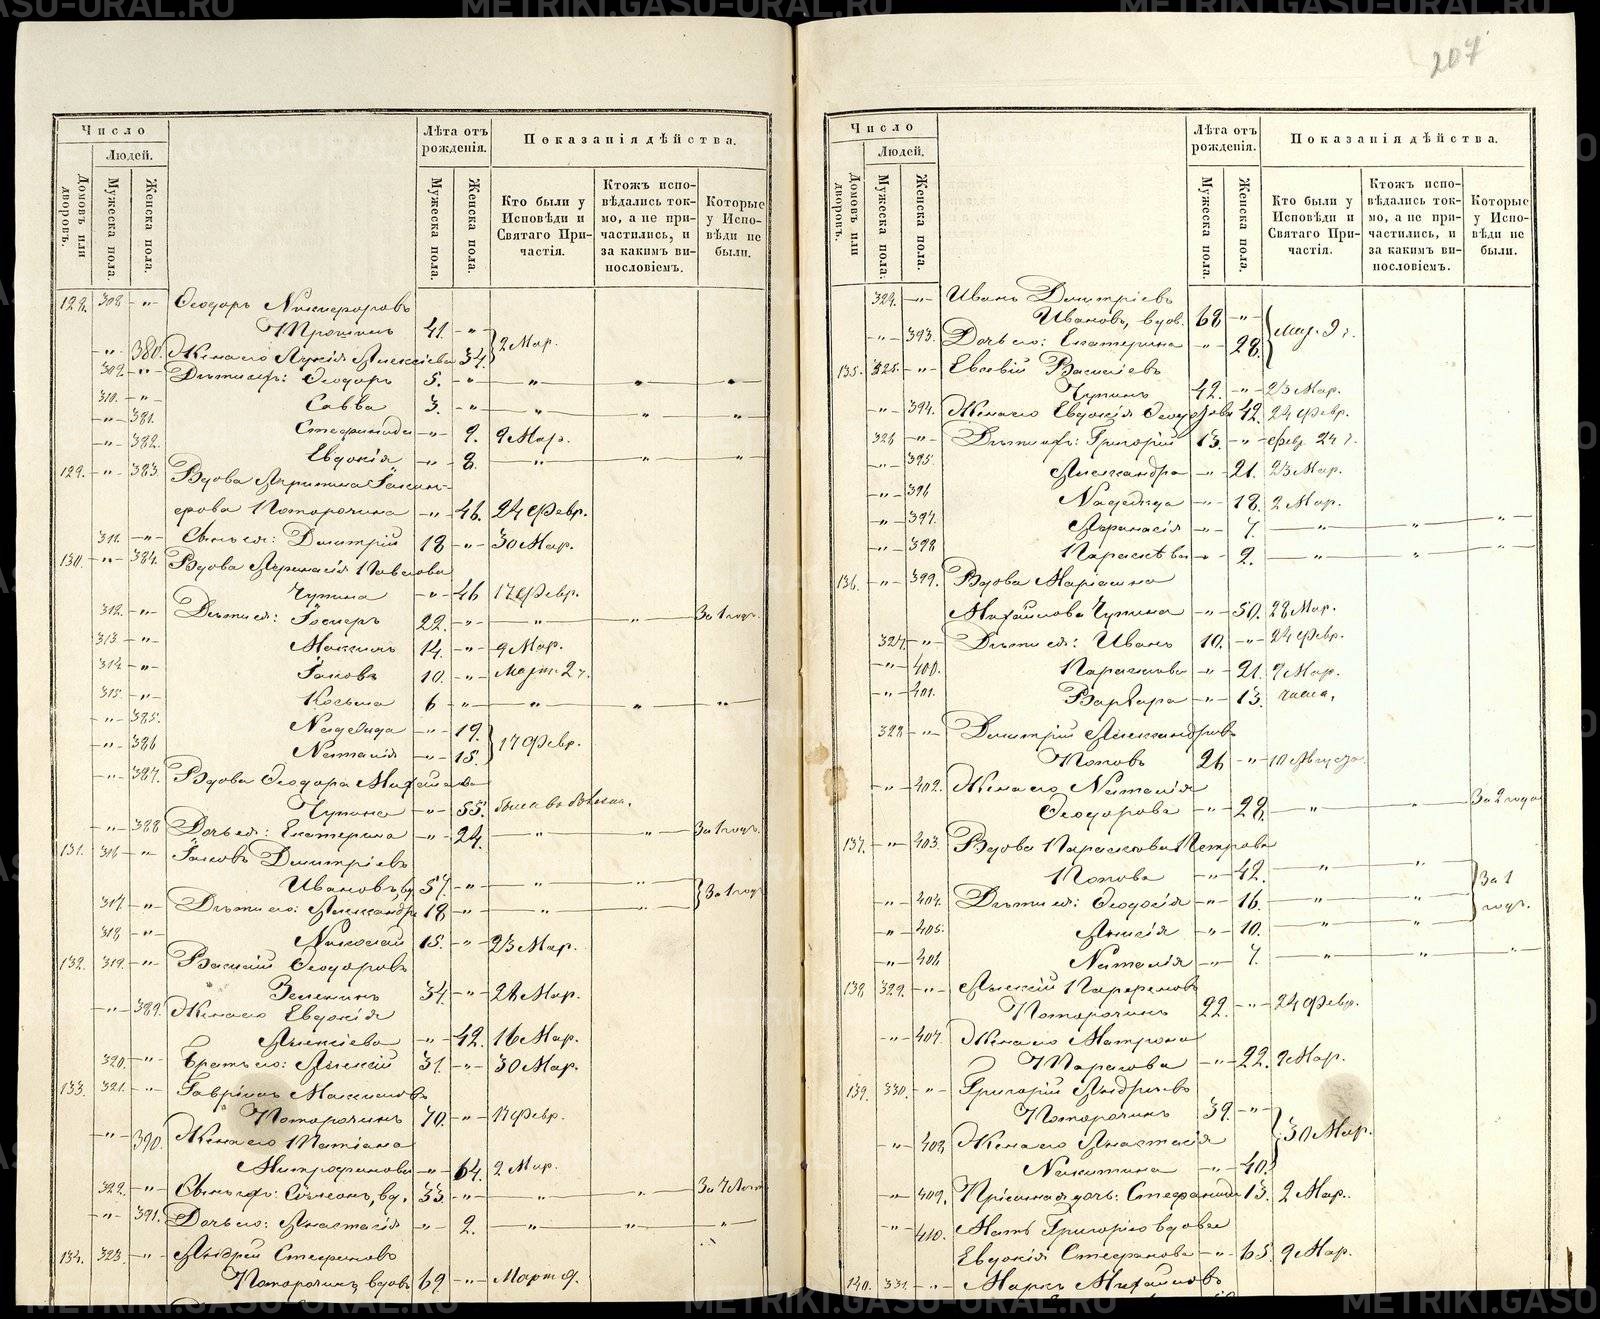 207
Число
Людей.
Домовъ или дворовъ.
Мужеска пола.
Женска пола.
Лѣта отъ рожденія.
Мужеска пола.
Женска пола.
Показанія дѣйства.
Кто были у Исповѣди и Святаго Причастія.
Ктожъ исповѣдались токмо, а не причастились, и за какимъ винословіемъ.
Которые у Исповѣди не были.
128. 308 -"- Ѳеодоръ Никифоровъ
Трошинъ 41. -"-
-"- 380. Жена его Лукія Алексіева 34. 2 Мар.
309. -"- Дѣти ихъ: Ѳеодоръ 5. -"- " " "
310. -"- Савва 3. -"- " " "
-"- 381. Стефанида -"- 9. 9 Мар.
-"- 382. Евдокія -"- 8. " " "
129. -"- 383. Вдова
Поторочина -"- 46. 24 Февр.
311. -"- Сынъ ея: Димитрій 18 -"- 30 Мар.
130. -"- 384. Вдова Аѳанасія Павлова
Чупина -"- 46 17 Февр.
312. -"- Дѣти ея: 22. -"- " " За 1 годъ.
313 -"- Максимъ 14. -"- 9 Мар.
314 -"- Іаковъ 10. -"- Март. 2 ч.
315. -"- Косьма 6 -"- " " "
-"- 385. Надежда -"- 19.
-"- 386 Наталія -"- 15. 17 Февр.
-"- 387. Вдова Ѳеодора Михайлова
Чупина -"- 55. была въ
-"- 388 Дочь ея: Екатерина -"- 24. " " За 1 годъ.
131. 316 -"- Іаковъ Димитріевъ
Ивановъ, вд. 57. -"- " "
317. -"- Дѣти его: Александръ 18 -"- " " За 1 годъ
318 -"- Николай 15. -"- 23 Мар.
132. 319. -"- Василій Ѳеодоровъ
Зеленинъ 34. -"- 28 Мар.
-"- 389. Жена его Евдокія
Алексіева -"- 42. 16 Мар.
320. -"- Братъ его: Алексій 31. -"- 30 Мар.
133. 321. -"- Гавріилъ Максимовъ
Поторочинъ 70. -"- 17 Февр.
-"- 390. Жена его Татіана
Митрофанова -"- 64. 2 Мар.
322. -"- Сынъ ихъ: Симеонъ, вд. 33. -"- " " За 7 лѣтъ
-"- 391. Дочь его: Анастасія -"- 2. " " "
134. 323. -"- Андрей Стефановъ
Поторочинъ, вдовъ 69 -"- Март. 9.
Число
Людей.
Домовъ или дворовъ.
Мужеска пола.
Женска пола.
Лѣта отъ рожденія.
Мужеска пола.
Женска пола.
Показанія дѣйства.
Кто были у Исповѣди и Святаго Причастія.
Ктожъ исповѣдались токмо, а не причастились, и за какимъ винословіемъ.
Которые у Исповѣди не были.
324. -"- Иванъ Димитріевъ
Ивановъ, вдов. 68 -"-
-"- 393. Дочь его: Екатерина -"- 28. Мар. 9 ч.
135. 325. -"- Евсевій Василіевъ
Чупинъ 42. -"- 23 Мар.
-"- 394. Жена его Евдокія Ѳеодорова 42. 24 Февр.
326 -"- Дѣти ихъ: Григорій 13. -"- Февр. 24 ч.
-"- 395. Александра -"- 21. 23 Мар.
-"- 396 Надежда -"- 18. 2 Мар.
-"- 397. Аѳанасія -"- 7. " " "
-"- 398 Параскѣва -"- 2. " " "
136. -"- 399. Вдова Маріамна
Михайлова Чупина -"- 50. 28 Мар.
327. -"- Дѣти ея: Иванъ 10. -"- 24 Февр.
-"- 400. Параскова -"- 21. 9 Мар.
-"- 401. Варвара -"- 13. числа,
328 -"- Димитрій Александровъ
Поповъ 26 -"- 10 Августа.
-"- 402. Жена его Наталія
Ѳеодорова -"- 28. " " За 2 года
137. -"- 403. Вдова Параскова Петрова
Попова -"- 42. " "
-"- 404. Дѣти ея: Ѳеодосія -"- 16. " " За 1 годъ.
-"- 405. Анисія -"- 10. " "
-"- 406 Наталія -"- 7. " " "
138 329. -"- Алексій Парѳеновъ
Поторочинъ 22. -"- 24 Февр.
-"- 407. Жена его Матрона
Тарасова -"- 22. 9 Мар.
139. 330. -"- Григорій Андреевъ
Поторочинъ 39. -"-
-"- 408 Жена его Анастасія 30 Мар.
Никитина -"- 40.
-"- 409. Пріемная дочь: Стефанида 13. 2 Мар.
-"- 410. Мать Григорію вдова
Евдокія Стефанова -"- 65. 9 Мар.
140. 331. -"- Маркъ Михайловъ
METRIKI.GASU-URAL.RU